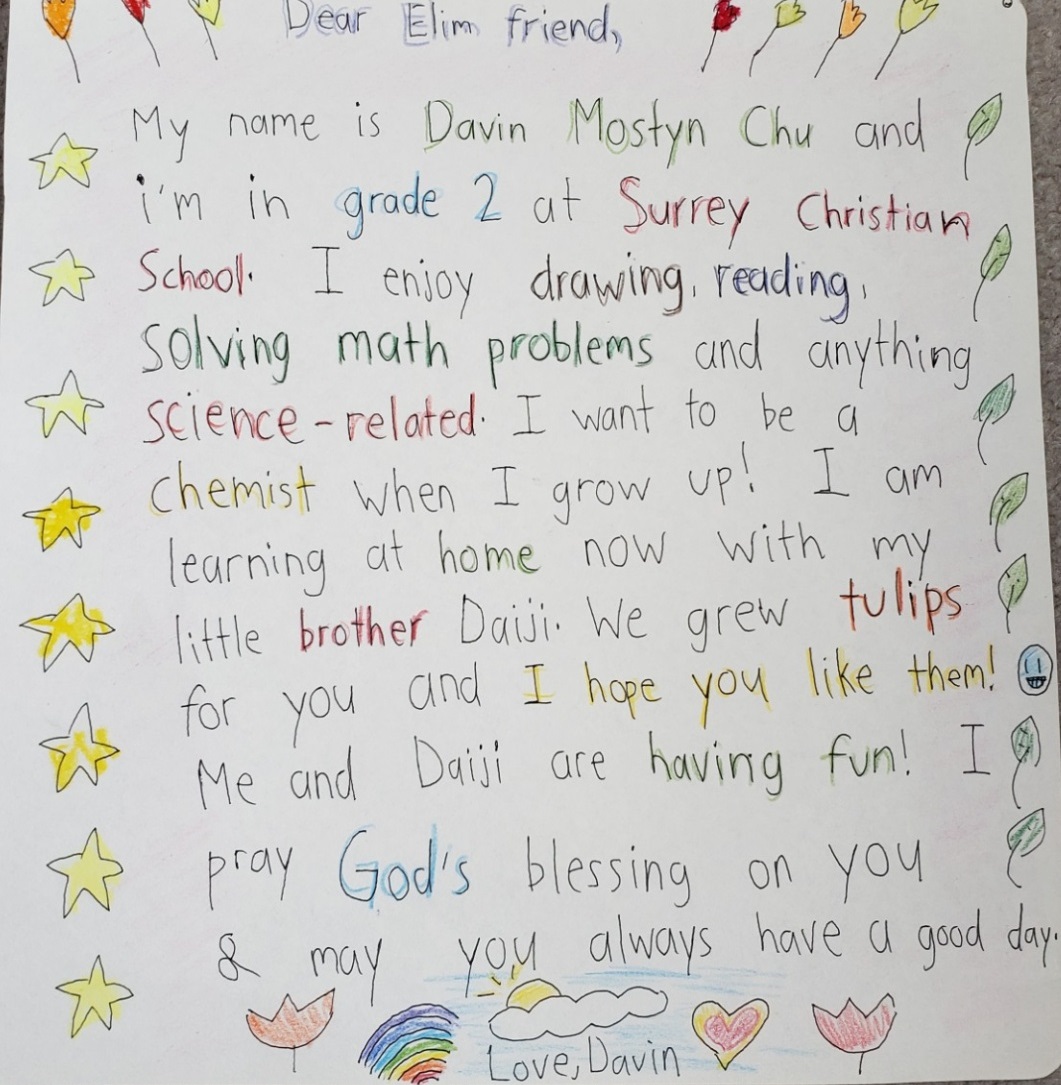 Dear Elim friend,
My name is Davin Mostyn Chu and
i'm in grade 2 at Surrey Christian
School. I enjoy drawing, reading,
solving math problems and anything
science-related. I want to be a
chemist when I grow up! I am
learning at home now with my
little brother Daiji. We grew tulips
for you and I hope you like them!
Me and Daiji are having fun! I
pray God's blessing on you
& may you always have a good day.
Love, Davin